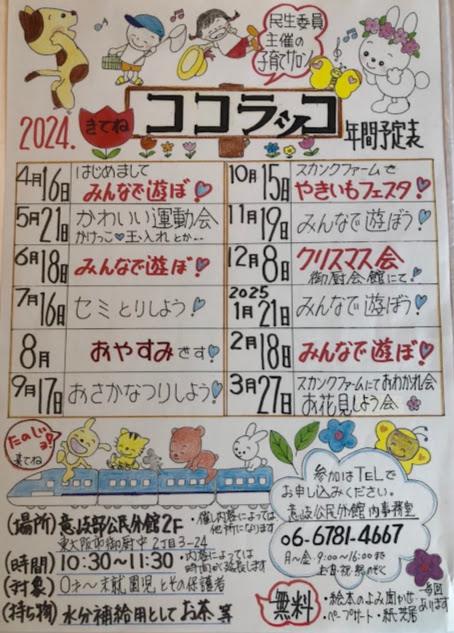 民生委員
主催の
子育てサロン
2024.
きてね
ココラッコ
年間予定表
4月16日
はじめまして
みんなで遊ぼ!
5月21日
かわいい運動会
かけっこ♡玉入れとか…
6月18日
みんなで遊ぼ!
7月16日
セミとりしよう!
8月
おやすみです!
9月17日
おさかなつりしよう!
10月15日
スカンクファームで
やきいもフェスタ!
11月19日
みんなで遊ぼう!
12月8日
クリスマス会
御厨会館にて!
2025
1月21日
みんなで遊ぼう!
2月18日
みんなで遊ぼ!
3月27日
スカンクファームにておわかれ会
お花見しよう会
たのしいョ!
来てね
(場所)意岐部公民分館2F
・催し内容によっては
他所になります
東大阪市御厨中2丁目3-24
(時間)10:30~11:30
・内容によっては
時間が延長します
(対象)0才~未就園児とその保護者
(持ち物)水分補給用としてお茶等
参加はTELで
お申し込みください。
意岐部公民分館内事務室
06-6781-4667
月~金・9:00~16:00時
土・日・祝 のぞく
無料
・絵本のよみ聞かせ
・ペープサート・紙芝居
毎回
あります